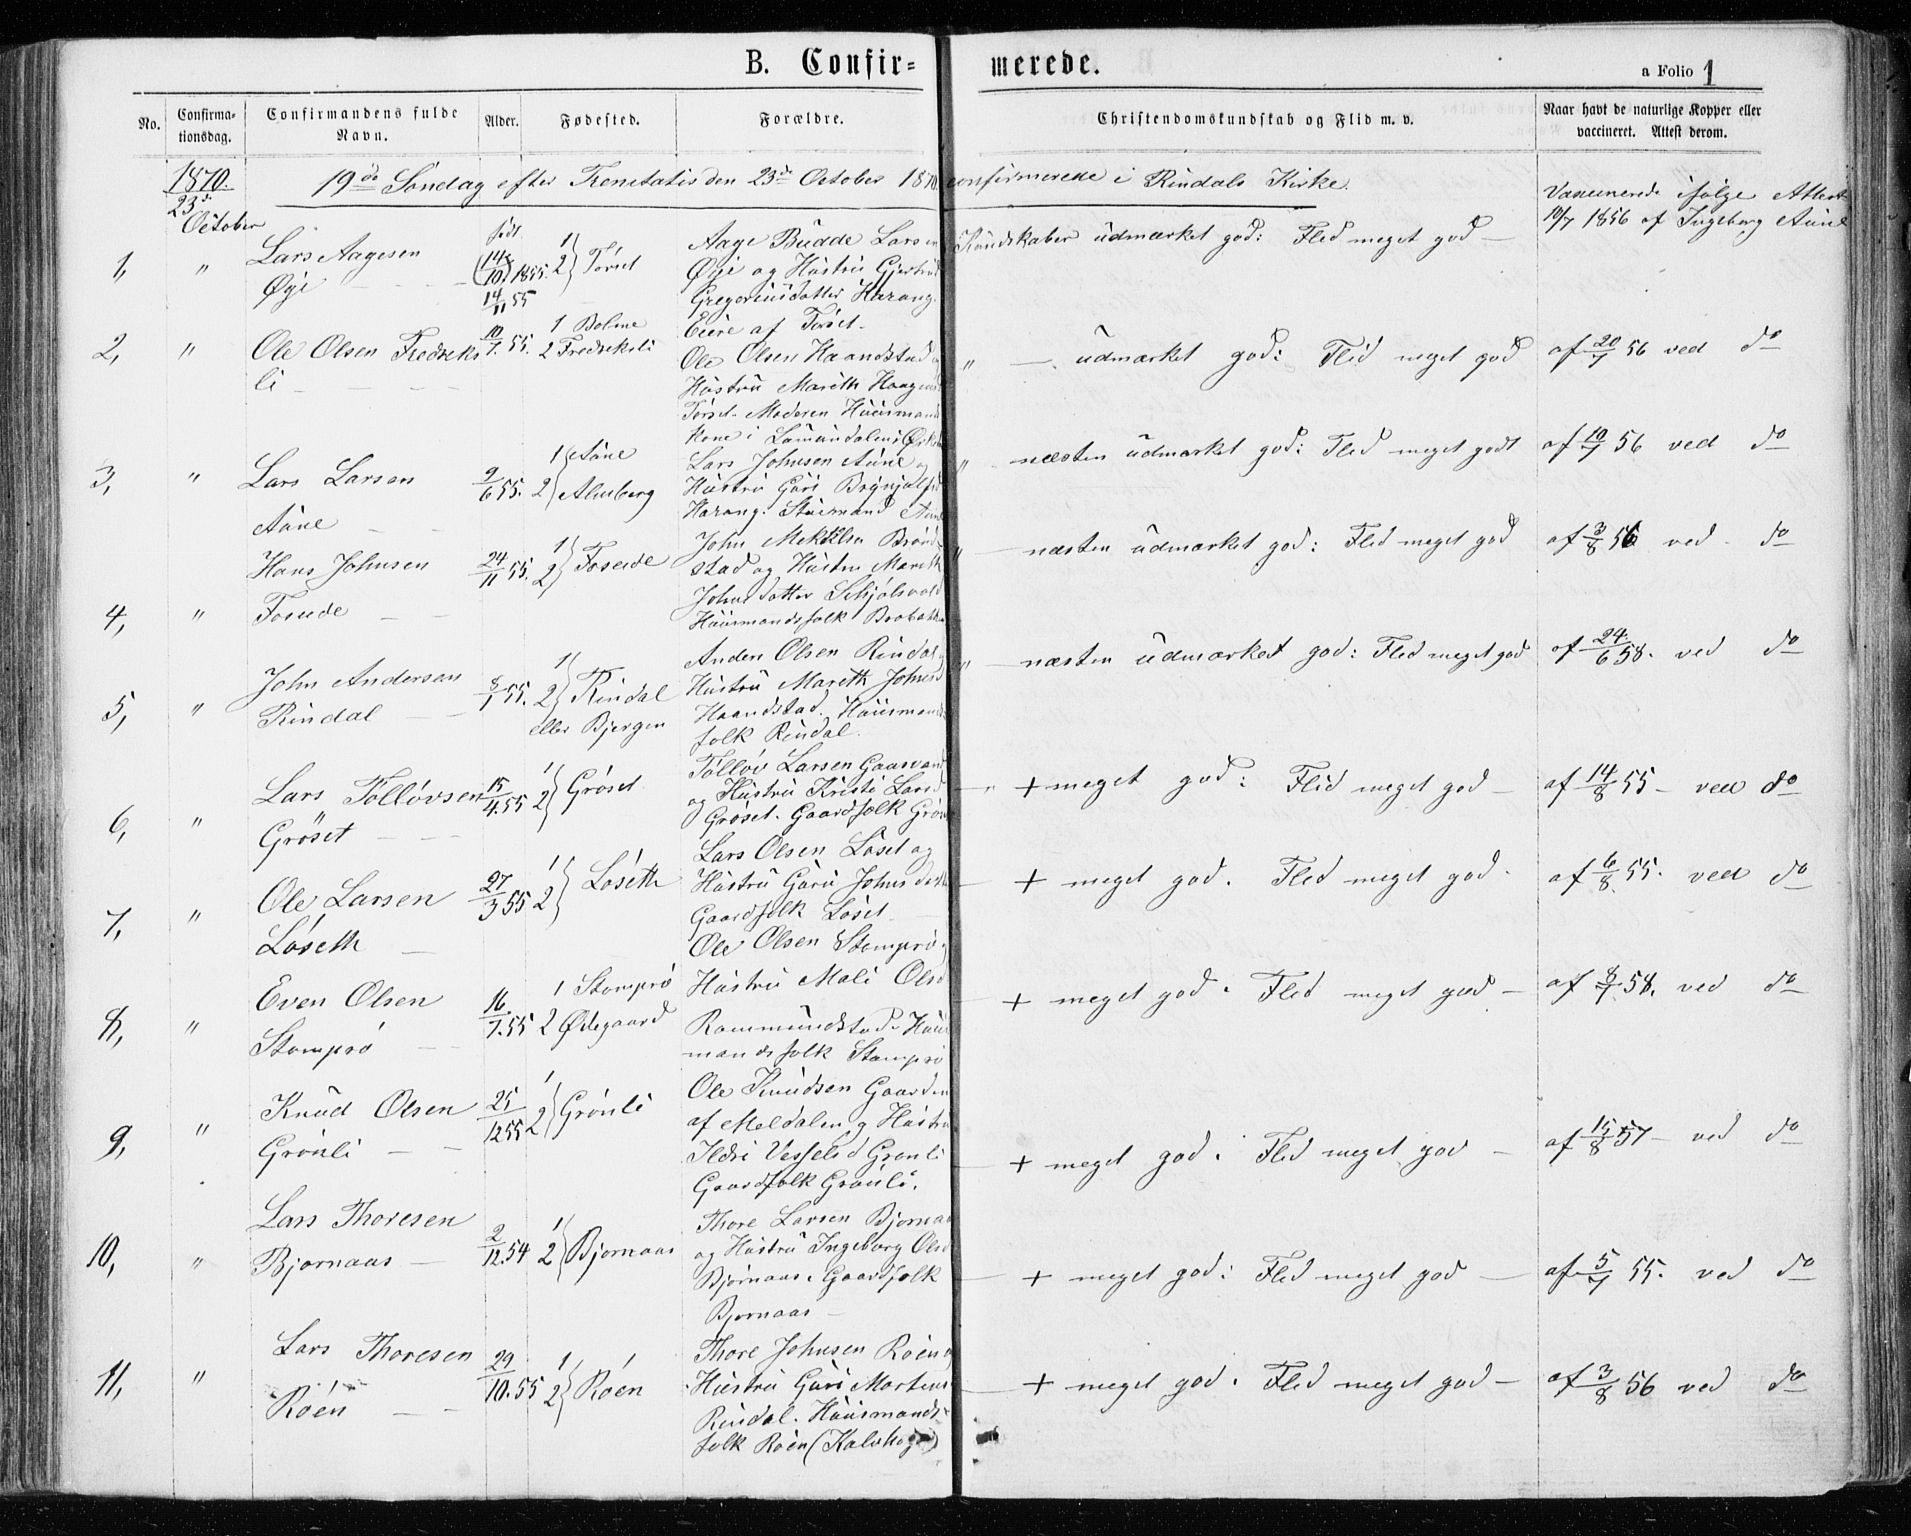 B. Confir-
merede.
a Folio 1
No.
Confirma-
tionsdag.
Confirmandens fulde
Navn.
Alder.
Fødested.
Forældre.
Christendomskundskab og Flid m. v.
Naar havt de naturlige Kopper eller
vaccineret. Attest derom.
1870.
23de
October
19de Søndag efter Trenitatis den 23de October 1870 confirmerede i Rindals Kirke.
1, " Lars Aagesen
Øye
født
14/10 1855.
14/11 55
1
2 } Torset
Aage Budde Larsen
Øye og Hustru Gjertrud
Gregoriusdatter Harang.
Eiere af Torset.
Kundskaber udmærket god: Flid meget god —
Vaccinerede ifølge Attest
10/7 1856 af Ingeborg Aune
2, " Ole Olsen Fredreks
li
10/7. 55.
1 Bolme
2 Fredreksli
Ole Olsen Haandstad
Hustru Marith Haagens
Torset. Moderen Huusmands
Kone i Lomundalens Ørk
" —. udmærket god: Flid meget god
af 20/7 56 ved do
3, " Lars Larsen
Aune
9/6 55.
1 } Aune
2 } Almberg
Lars Johnsen Aune og
Hustru Guri Brynjulfsd
Harang. Stuemand Aune
" næsten udmærket god: Flid meget godt
af 10/7 56 ved do
4, " Hans Johnsen
Foseide
24/11 55.
1
2 } Foseide
John Mekkelsen Brønd-
stad og Hustru Marith
Johnsdatter Schjølsvold
Huusmandsfolk Brobakken
" næsten udmærket god: Flid meget god
af 3/8 56 ved do
5, " John Andersen
Rindal
8/1 55.
1
2 } Rindal
eller Bjergen
Anders Olsen Rindal
Hustru Marith Johnsd
Haandstad. Huusmands
folk Rindal.
" næsten udmærket god: Flid meget god
af 24/6 58. ved do
6, " Lars Tølløvsen
Grøset
15/4. 55
1
2 } Grøset
Tølløv Larsen Gaasvand
og Hustru Kristi Larsd
Grøset. Gaardfolk Grøset
" + meget god: Flid meget god —
af 14/8 55 — ved do
7, " Ole Larsen
Løseth
27/3 55
1
2 } Løseth
Lars Olsen Løset og
Hustru Guru Johnsdatter
Gaardfolk Løset
+ meget god. Flid meget god.
af 6/8. 55. ved do
8, " Even Olsen
Stomprø
16/7. 55
1 Stomprø
2 Ødegaard
Ole Olsen Stomprø
Hustru Mali Olsd
Rommundstad. Huus
mandsfolk Stomprø
+ meget god. Flid meget god —
af 8/7 58. ved do
9, " Knud Olsen
Grønli
25/12 55
1
2 } Grønli
Ole Knudsen Gaarden
af Meldalen og Hustru
Ildri Vesselsd Grønli
Gaardfolk Grønli.
+ meget god. Flid meget god —
af 15/8 57 — ved do
10, " Lars Thoresen
Bjørnaas
2/12. 54
1
2 } Bjørnaas
Thore Larsen Bjørnaas
og Hustru Ingeborg Olsd
Bjørnaas. Gaardfolk
Bjørnaas —
+ meget god: Flid meget god —
af 5/7 55. ved do
11, " Lars Thoresen
Røen
29/10. 55
1
2 } Røen
Thore Johnsen Røen og
Hustru Guri Mortens
Rindal. Huusmands-
folk Røen (Kalvhagen)
+ meget god. Flid meget god —
af 3/8 56 ved do